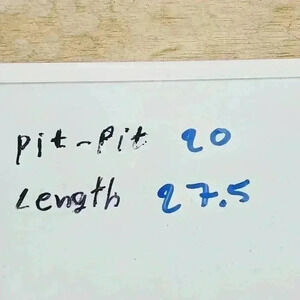 pit-pit 20
Length 27.5